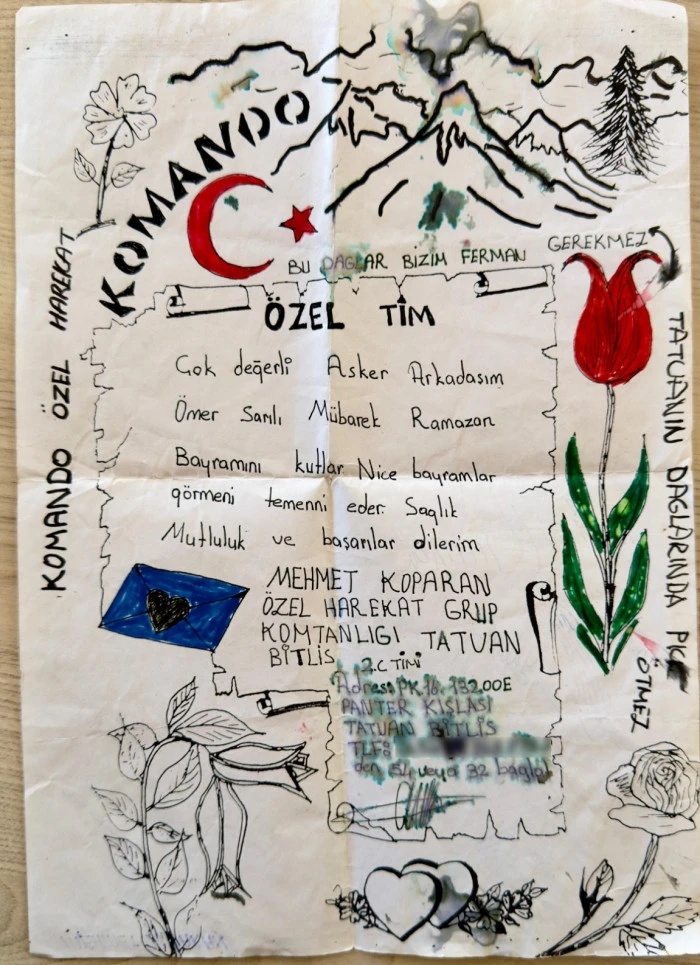 KOMANDO
BU DAGLAR BIZIM FERMAN
GEREKMEZ
KOMANDO ÖZEL HAREKAT
ÖZEL TİM
Çok değerli Asker Arkadasım
Ömer Sarılı Mübarek Ramazan
Bayramını kutlar Nice bayramlar
görmeni temenni eder. Saglık
Mutluluk ve başarılar dilerim
MEHMET KOPARAN
ÖZEL HAREKAT GRUP
KOMTANLIGI TATUAN
BİTLİS 2.C TİMİ
Adres: PK 18. 132.00E
PANTER KISLASI
TATUAN BİTLİS
TLF:
den 54 veya 32 bagla
TATUANIN DAGLARINDA
ÖTMEZ